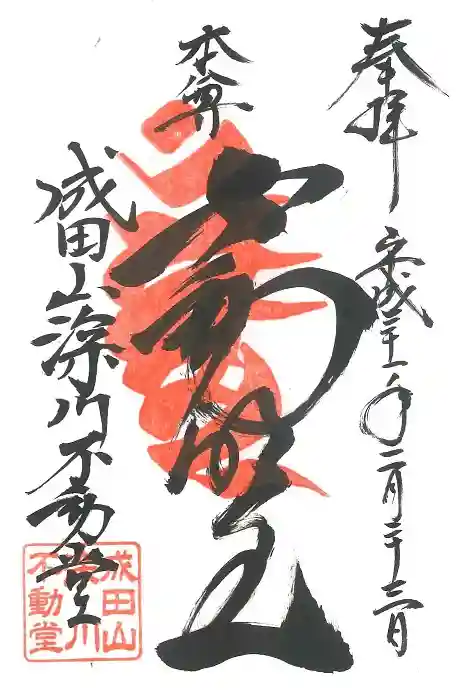 奉拝
平成二十一年二月二十三日
本尊
不動明王
成田山深川不動堂
成田山
深川
不動堂